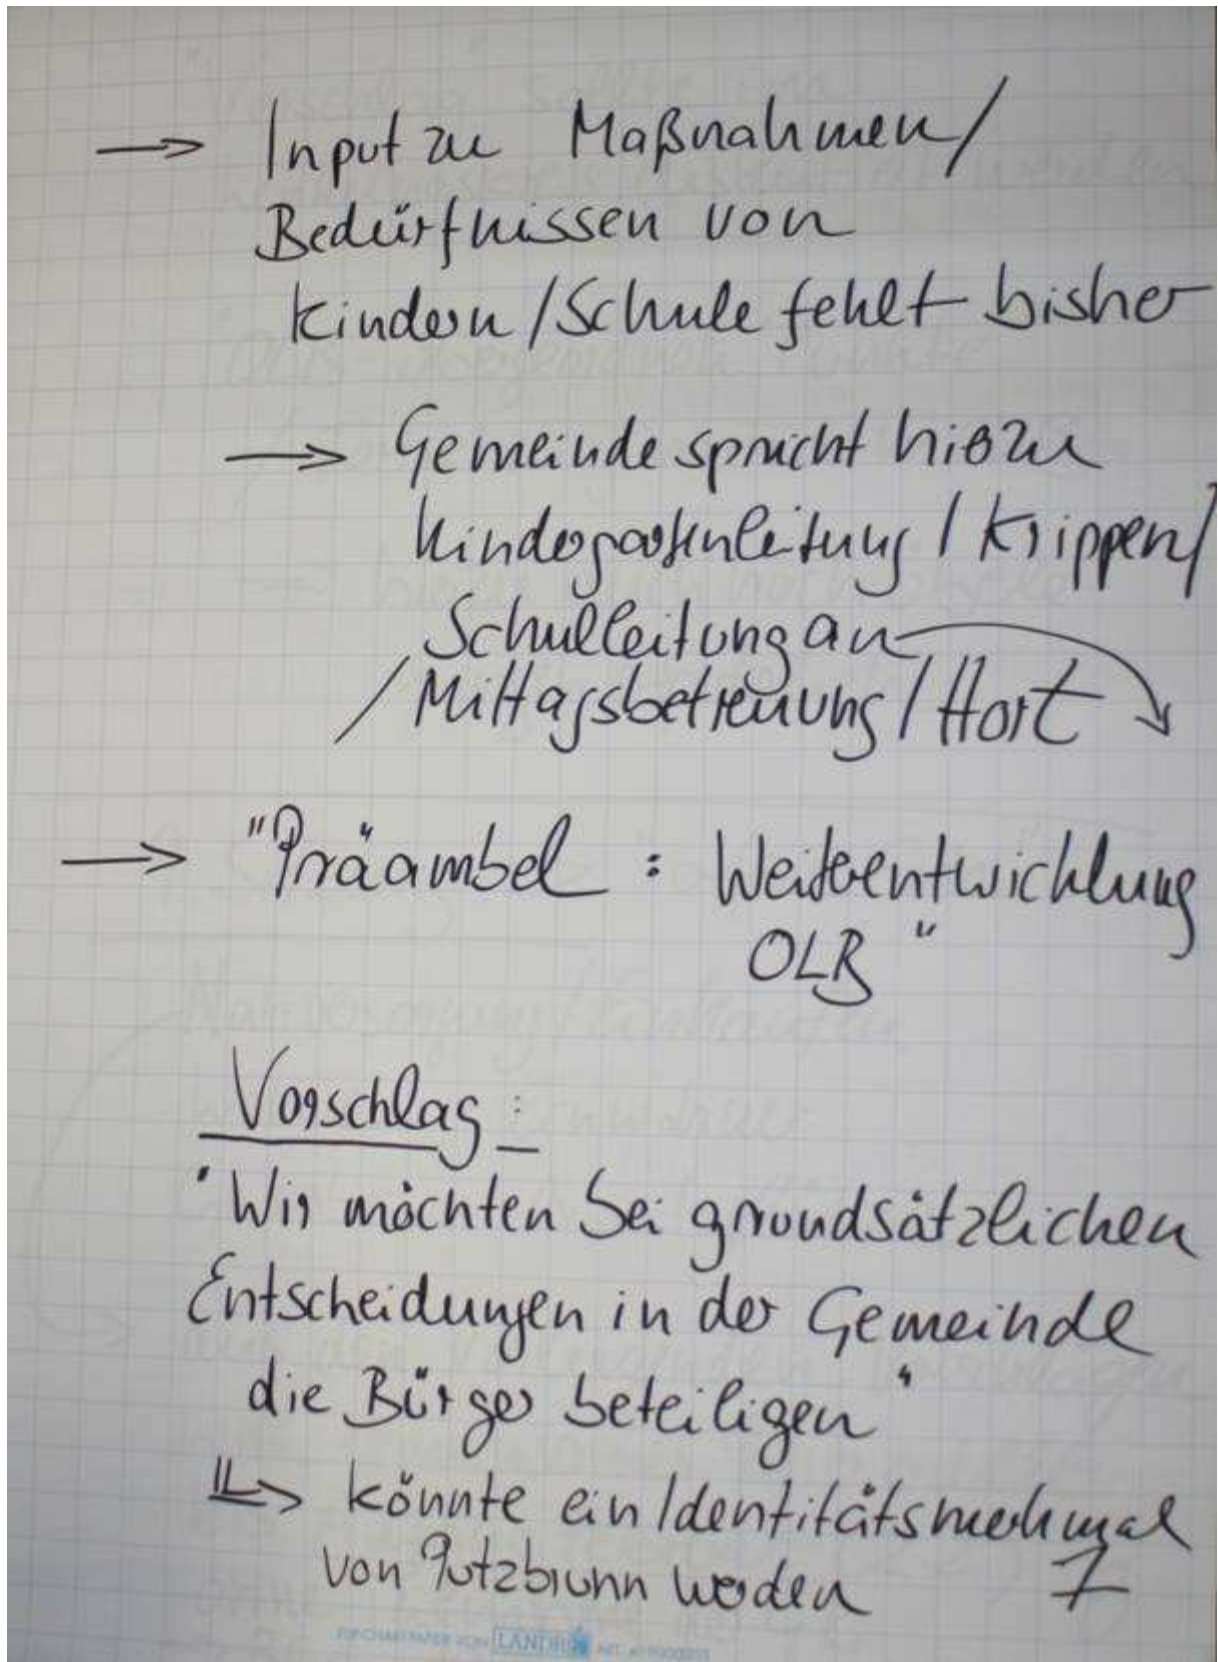 → Input zu Maßnahmen/
Bedürfnissen von
Kindern/Schule fehlt bisher
→ Gemeinde spricht hierzu
Kindergartenleitung / Krippen/
Schulleitung an
/ Mittagsbetreuung / Hort
→ "Präambel : Weiterentwicklung
OLB"
Vorschlag:
"Wir möchten bei grundsätzlichen
Entscheidungen in der Gemeinde
die Bürger beteiligen"
↳ könnte ein Identitätsmerkmal
von Putzbrunn werden 7
LANDRÉ